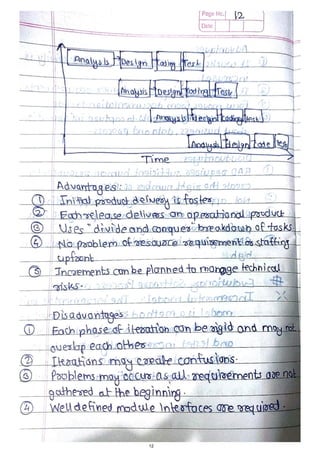 Page No. 12
Date
Analysis Design Coding Test
Analysis Design Coding Test
Analysis Design Coding Test
Analysis design code test
Time
Advantages
① Initial product delivery is faster
② Each release delivers an operational product
③ Uses "divide and conquer breakdown of tasks
④ No problem of resource requirement or staffing
upfront
⑤ Increments can be planned to manage technical
risks.
Disadvantages
① Each phase of iteration can be rigid and may not
overlap each other
② Iterations may create confusions.
③ Problems may occur as all requirements are not
gathered at the beginning.
④ Well defined module Interfaces are required.
12